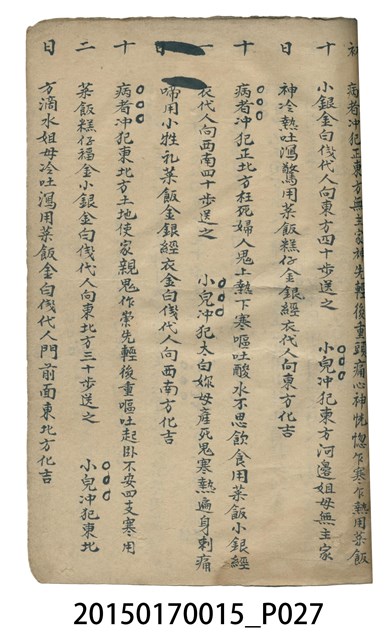 初 病者冲犯正東方無主家神先輕後重頭痛心神恍惚乍寒乍熱用菜飯
十 小銀金白伐代人向東方四十步送之 小兒冲犯東方河邊姐母無主家
日 神冷熱吐瀉驚用菜飯糕仔金銀經衣代人向東方化吉
十 病者冲犯正北方枉死婦人鬼上熱下寒嘔吐酸水不思飲食用菜飯小銀經
一 衣代人向西南四十步送之 小兒冲犯太白妳母產死鬼寒熱遍身刺痛
日 啼用小牲礼菜飯金銀經衣金白伐代人向西南方化吉
十 病者冲犯東北方土地使家親鬼作祟先輕後重嘔吐起卧不安四支寒用
二 菜飯糕仔福金小銀金白伐代人向東北方三十步送之 小兒冲犯東北
日 方滴水姐母冷吐瀉用菜飯金白伐代人門前面東北方化吉
20150170015_P027